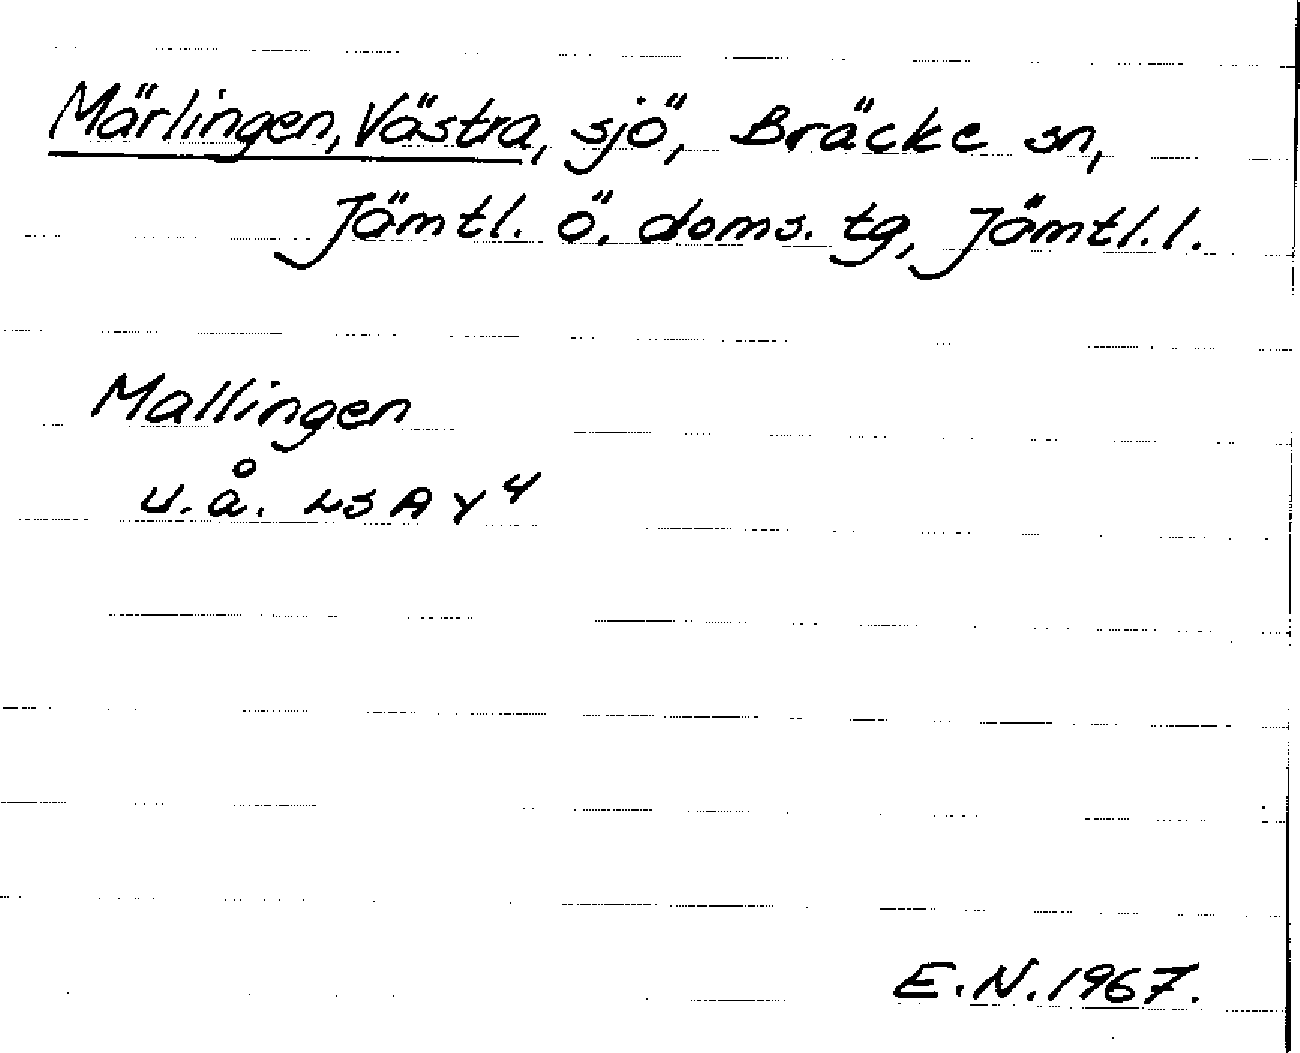 Märlingen, Västra, sjö, Bräcke sn,
Jämtl. ö. doms. tg, Jämtl. l.
Mallingen
u.å. LSA Y 4
E.N. 1967.